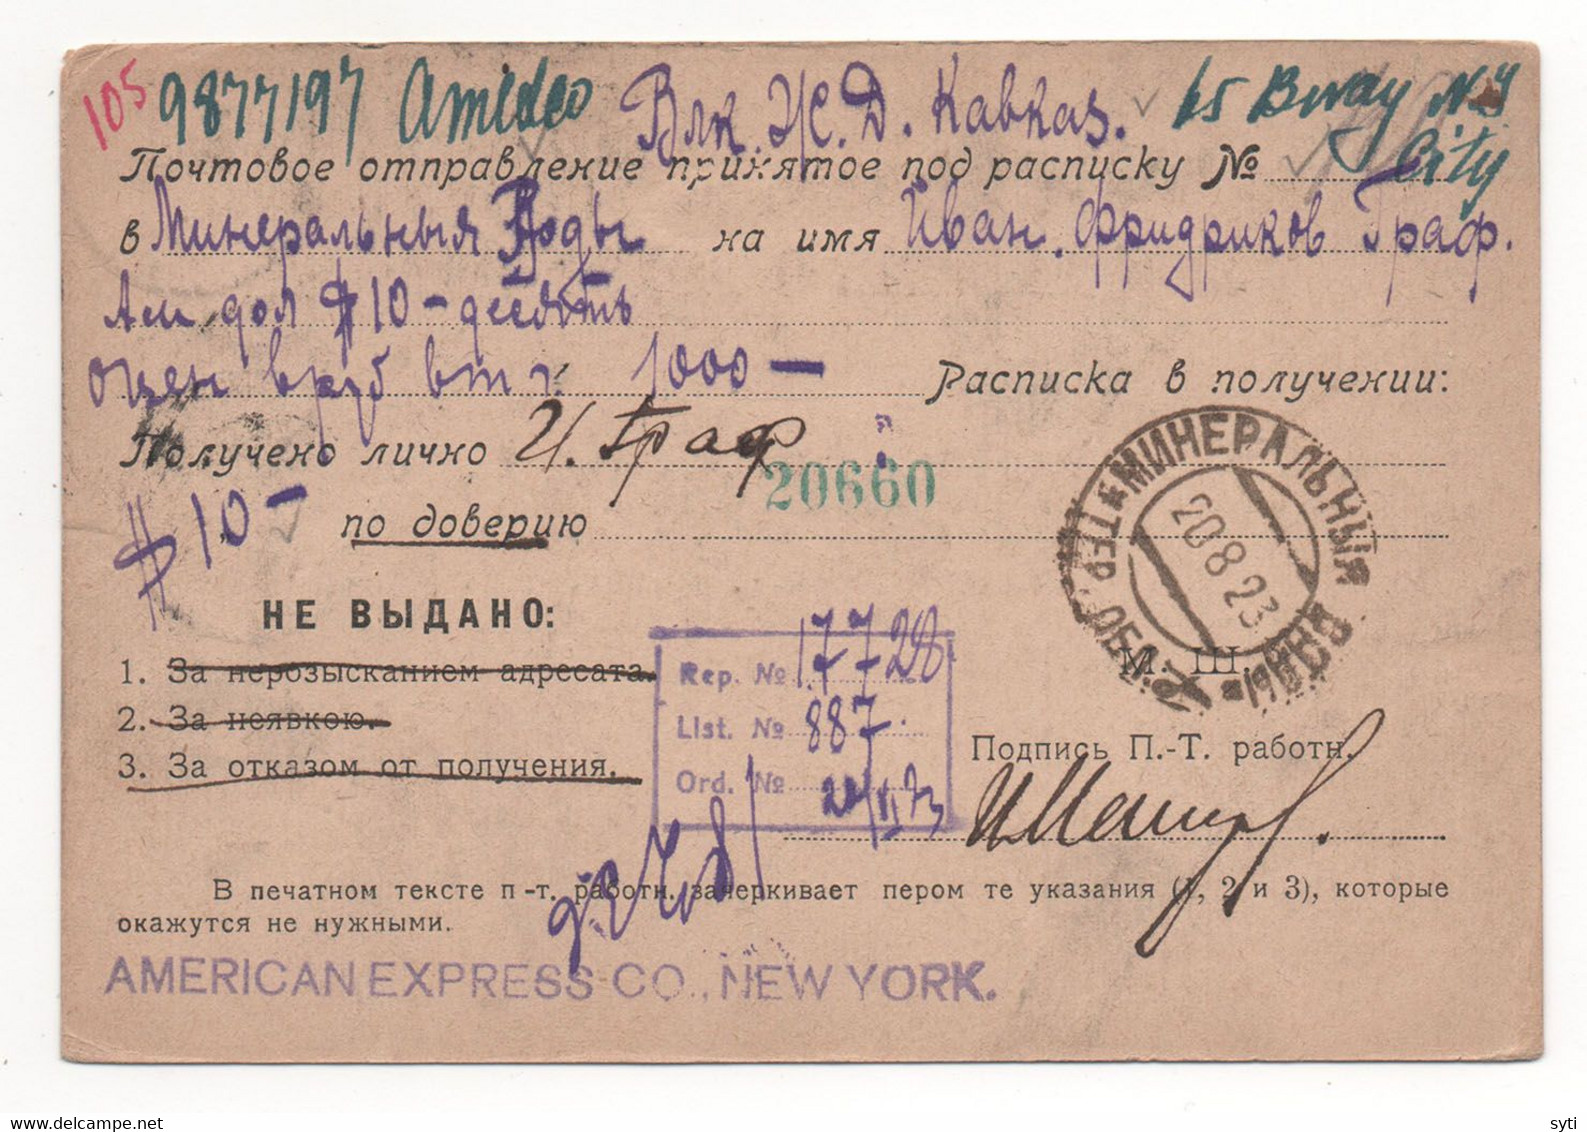 105 9877197 Amedeo Влк. Ж.Д. Кавказ. 65 Bway N.Y
City
Почтовое отправление принятое под расписку №
в Минеральныя Воды на имя Иван. Фридриков Граф.
Ам дол $10 – десять
оцен в руб 1000 —
Расписка в получении:
Получено лично И. Граф
20660
$10 –
„ по доверию
НЕ ВЫДАНО:
1. За нерозысканием адресата.
2. За неявкою.
3. За отказом от получения.
Rep. № 17728
List. № 887
Ord. №
МИНЕРАЛЬНЫЯ ВОДЫ ТЕР. ОБЛ.
20 8 23
М. Ш.
Подпись П.-Т. работн.
В печатном тексте п-т. работн. зачеркивает пером те указания (1, 2 и 3), которые
окажутся не нужными.
AMERICAN EXPRESS CO., NEW YORK.
syti